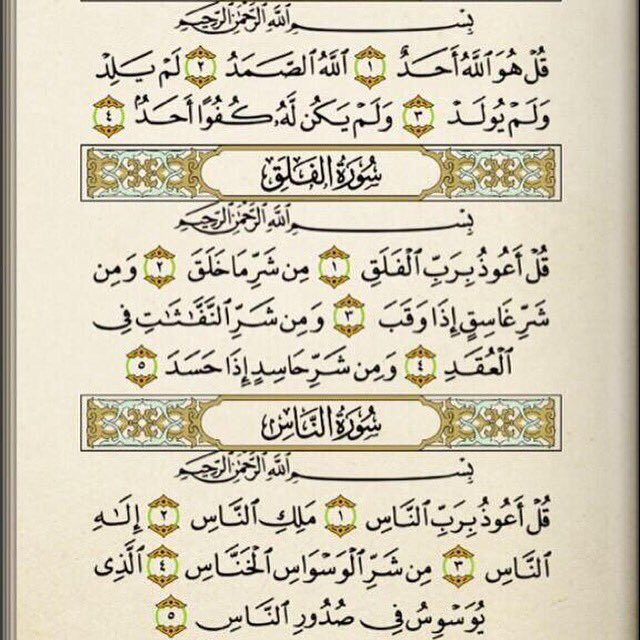 بِسْمِ اللَّهِ الرَّحْمَٰنِ الرَّحِيمِ
قُلْ هُوَ اللَّهُ أَحَدٌ ١ اللَّهُ الصَّمَدُ ٢ لَمْ يَلِدْ
وَلَمْ يُولَدْ ٣ وَلَمْ يَكُن لَّهُۥ كُفُوًا أَحَدٌۢ ٤
سُورَةُ الفَلَقِ
بِسْمِ اللَّهِ الرَّحْمَٰنِ الرَّحِيمِ
قُلْ أَعُوذُ بِرَبِّ ٱلْفَلَقِ ١ مِن شَرِّ مَا خَلَقَ ٢ وَمِن
شَرِّ غَاسِقٍ إِذَا وَقَبَ ٣ وَمِن شَرِّ ٱلنَّفَّٰثَٰتِ فِى
ٱلْعُقَدِ ٤ وَمِن شَرِّ حَاسِدٍ إِذَا حَسَدَ ٥
سُورَةُ النَّاسِ
بِسْمِ اللَّهِ الرَّحْمَٰنِ الرَّحِيمِ
قُلْ أَعُوذُ بِرَبِّ ٱلنَّاسِ ١ مَلِكِ ٱلنَّاسِ ٢ إِلَٰهِ
ٱلنَّاسِ ٣ مِن شَرِّ ٱلْوَسْوَاسِ ٱلْخَنَّاسِ ٤ ٱلَّذِى
يُوَسْوِسُ فِى صُدُورِ ٱلنَّاسِ ٥